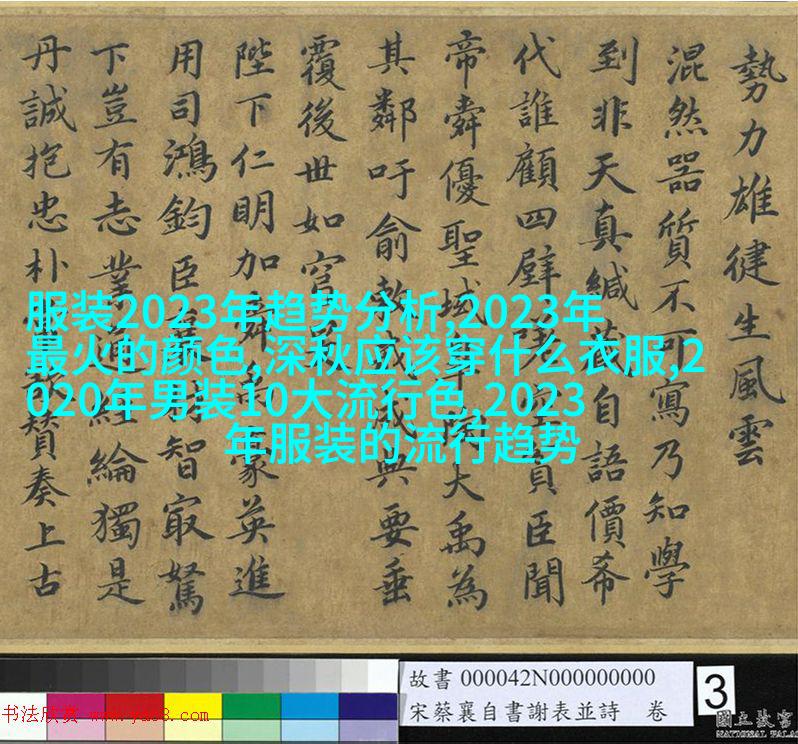 勢力雄健生風雲
混然器質不可寫乃知學
到非天真緘藏自語價希
代誰顧四壁空臣聞
帝舜優聖域大禹為
其鄰吁俞戒成典要垂
覆後世如穹
陛下仁明加舜豪英進
用司鴻鈞臣智最駑
下豈有志業經綸獨是
丹誠抱忠朴贊奏上古
服装2023年趋势分析,2023年
最火的颜色,深秋应该穿什么衣服,2
020年男装10大流行色,2023
年服装的流行趋势
故書 000042N000000000
宋蔡襄自書謝表並詩 卷
3
書法欣賞 www.yac8.com
國立故宮
NATIONAL PALAC